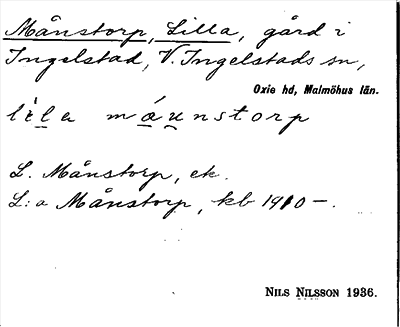 Månstorp, Lilla, gård i
Ingelstad, V. Ingelstads sn,
Oxie hd, Malmöhus län.
lìla máunstorp
L. Månstorp, ek.
L:a Månstorp, kb 1910 –.
NILS NILSSON 1936.